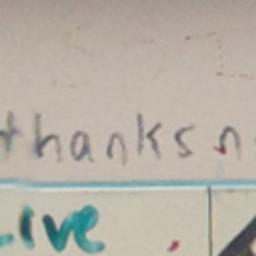 thanks n
Live